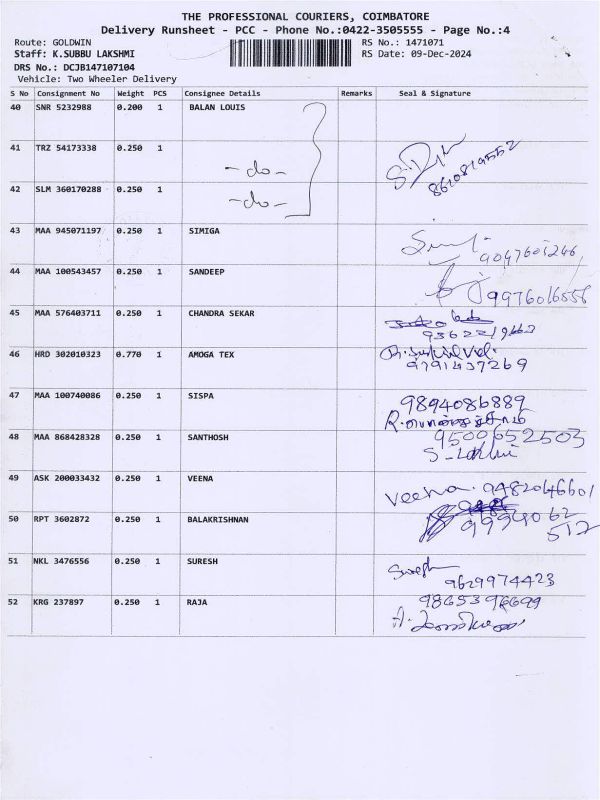 THE PROFESSIONAL COURIERS, COIMBATORE
Delivery Runsheet - PCC - Phone No.:0422-3505555 - Page No.:4
Route: GOLDWIN RS No.: 1471071
Staff: K.SUBBU LAKSHMI RS Date: 09-Dec-2024
DRS No.: DCJB147107104
Vehicle: Two Wheeler Delivery
S No Consignment No Weight PCS Consignee Details Remarks Seal & Signature
40 SNR 5232988 0.200 1 BALAN LOUIS
41 TRZ 54173338 0.250 1 -do-
8610819552
42 SLM 360170288 0.250 1 -do-
43 MAA 945071197 0.250 1 SIMIGA
9047601246
44 MAA 100543457 0.250 1 SANDEEP
9976016556
45 MAA 576403711 0.250 1 CHANDRA SEKAR
46 HRD 302010323 0.770 1 AMOGA TEX
9791437269
47 MAA 100740086 0.250 1 SISPA
9894086889
48 MAA 868428328 0.250 1 SANTHOSH
9500652503
49 ASK 200033432 0.250 1 VEENA
Veena. 9482046601
50 RPT 3602872 0.250 1 BALAKRISHNAN
9994062
512
51 NKL 3476556 0.250 1 SURESH
Suresh
9629974423
52 KRG 237897 0.250 1 RAJA
9865396699